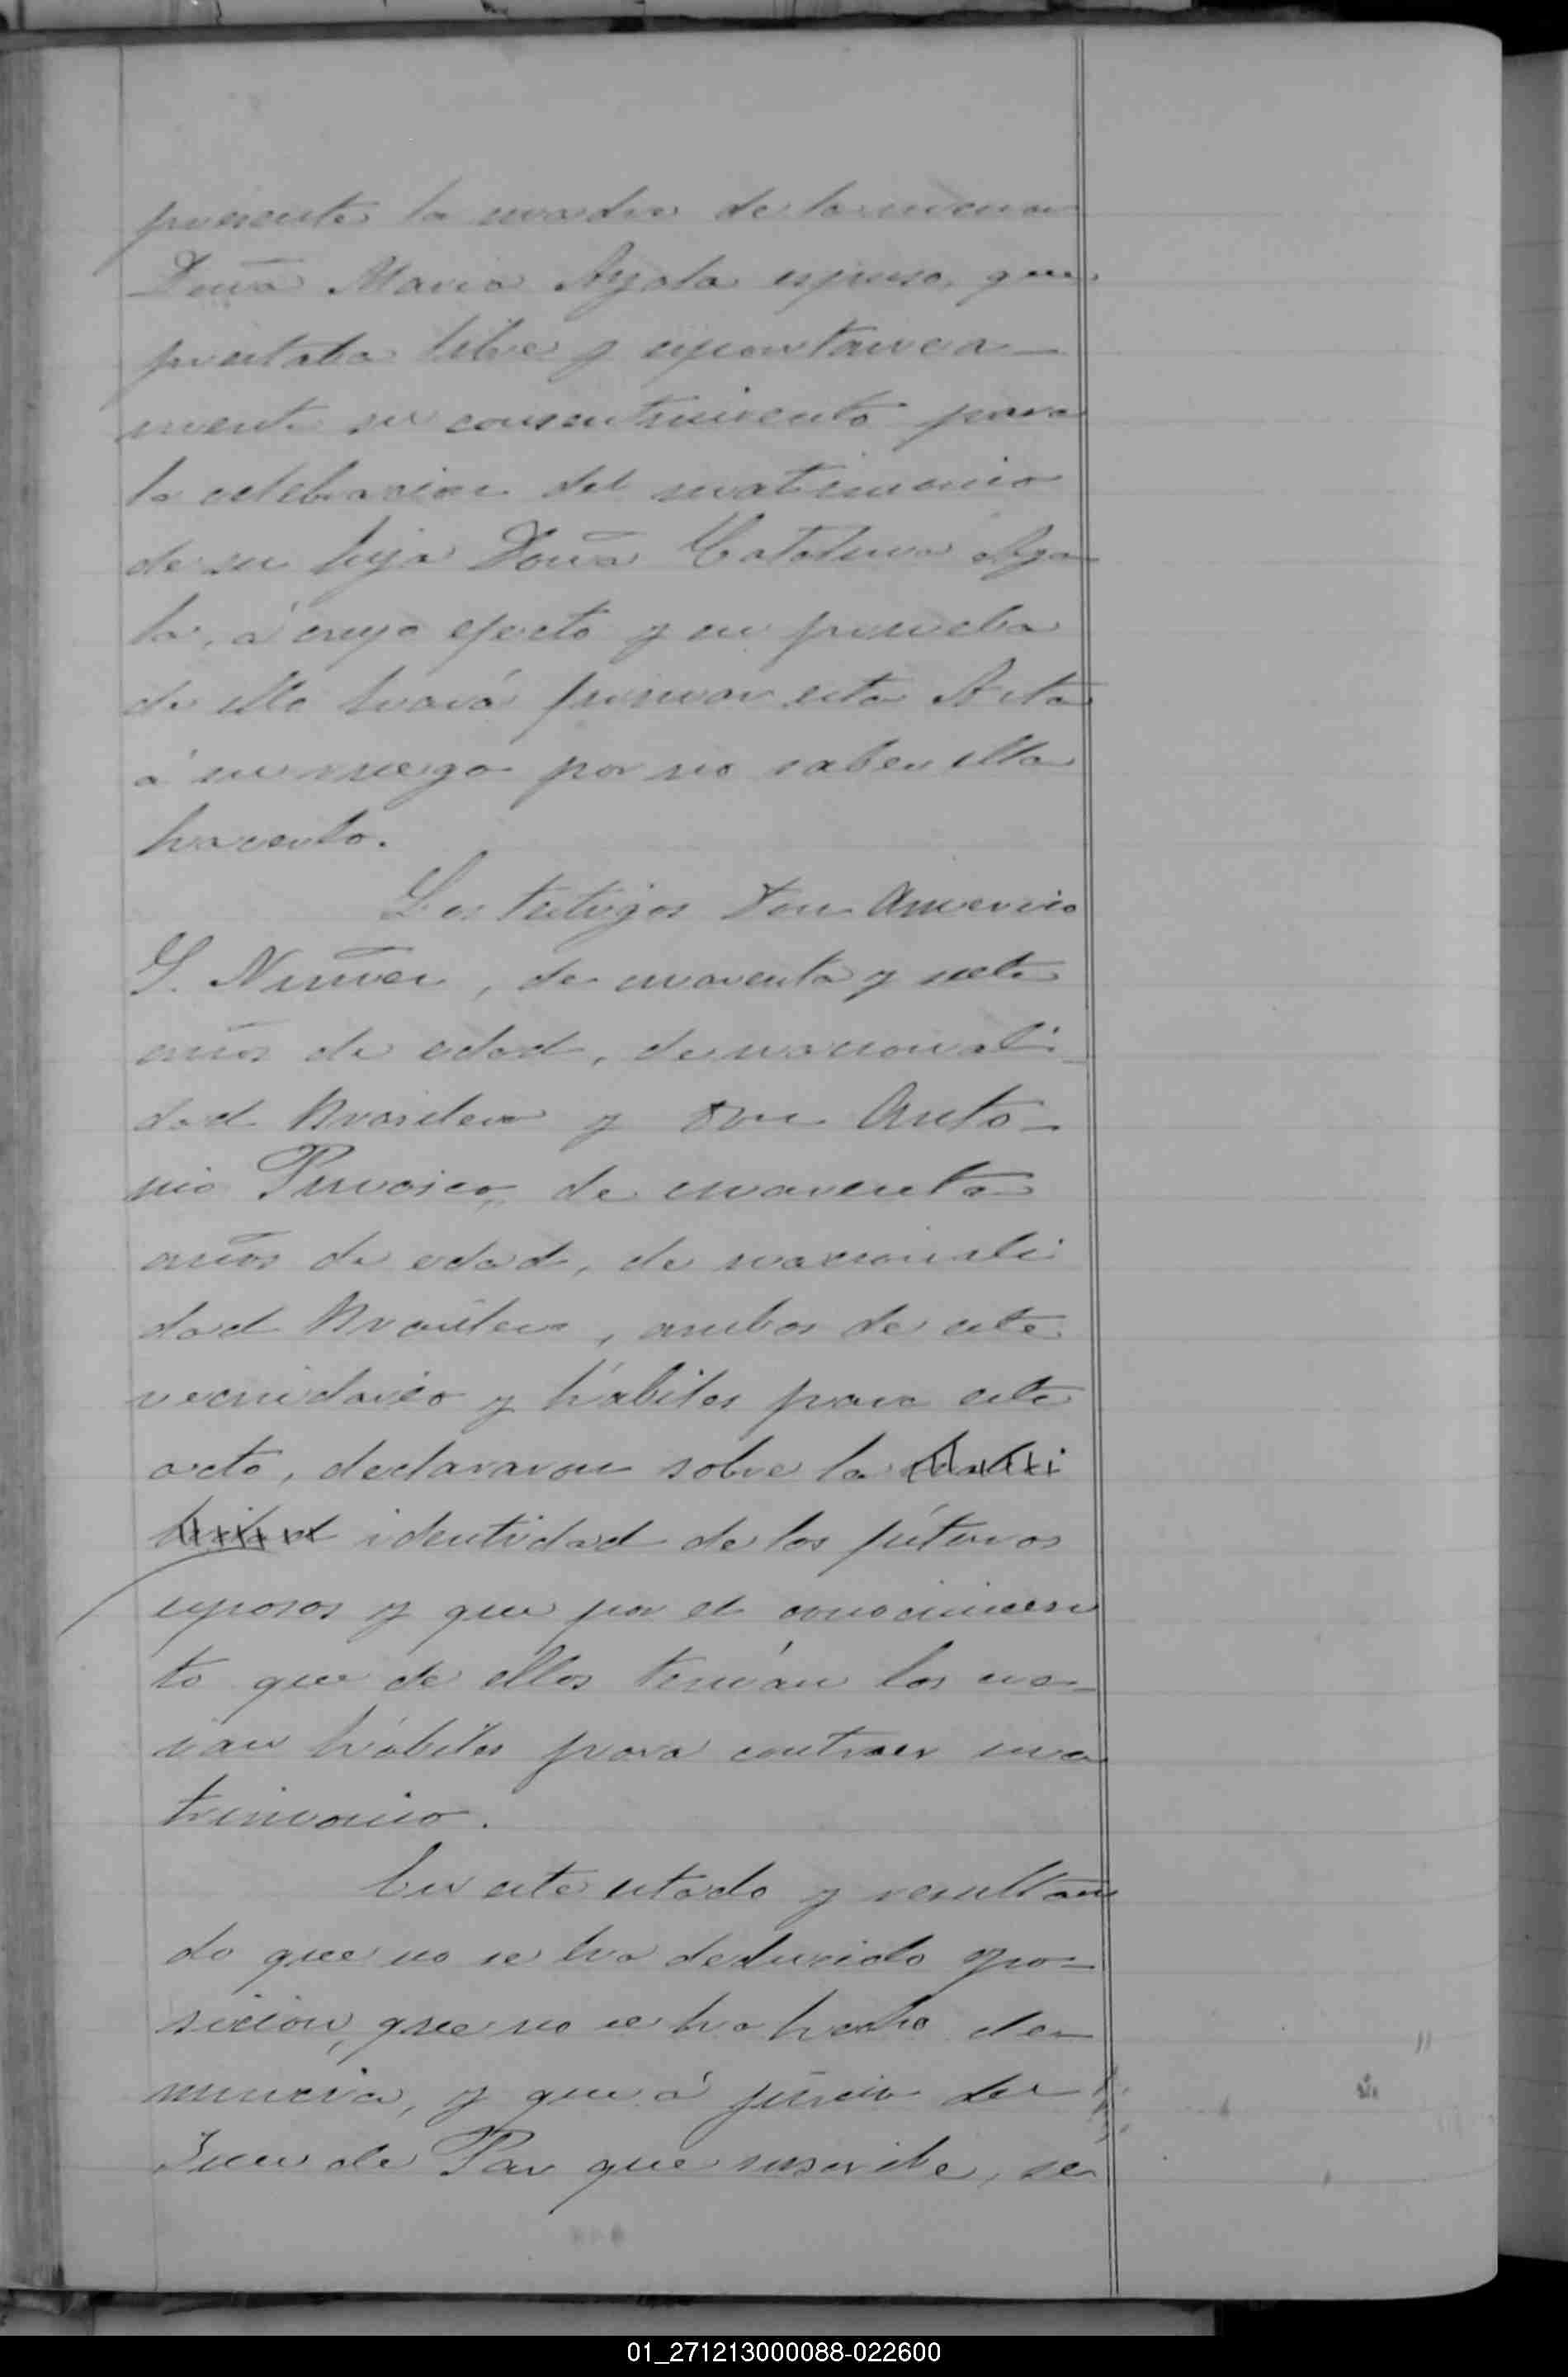 presente la madre de la menor
Doña Maria Ayala espuso, que
prestaba libre y espontanea-
mente su consentimiento para
la celebracion del matrimonio
de su hija Doña Catalina Aya-
la, á cuyo efecto y en prueba
de ello hará firmar esta Acta
á su ruego por no saber ella
hacerlo.
Los testigos Don Americo
G. Nuñez, de cuarenta y siete
años de edad, de nacionali-
dad Brasilera y Don Anto-
nio de cuarenta
años de edad, de nacionali
dad Brasilera, ambos de este
vecindario y hábiles para este
acto, declararon sobre la
identidad de los futuros
esposos y que por el conocimien
to que de ellos tenían los cre-
ian hábiles para contraer ma
trimonio.
En este estado y resultan
do que no se ha deducido opo-
sicion, que no se ha hecho de-
nuncia, y que á juicio del
Juez de Paz que suscribe, se
01_271213000088-022600